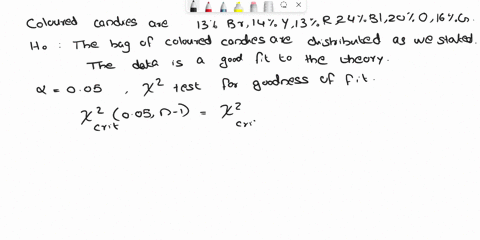 Coloured candies are 13% Br, 14% Y, 13% R, 24% Bl, 20% O, 16% G.
H₀ : The bag of coloured candies are distributed as we stated.
The data is a good fit to the theory.
α = 0.05 , χ² test for goodness of fit.
χ²crit (0.05, n-1) = χ²cri